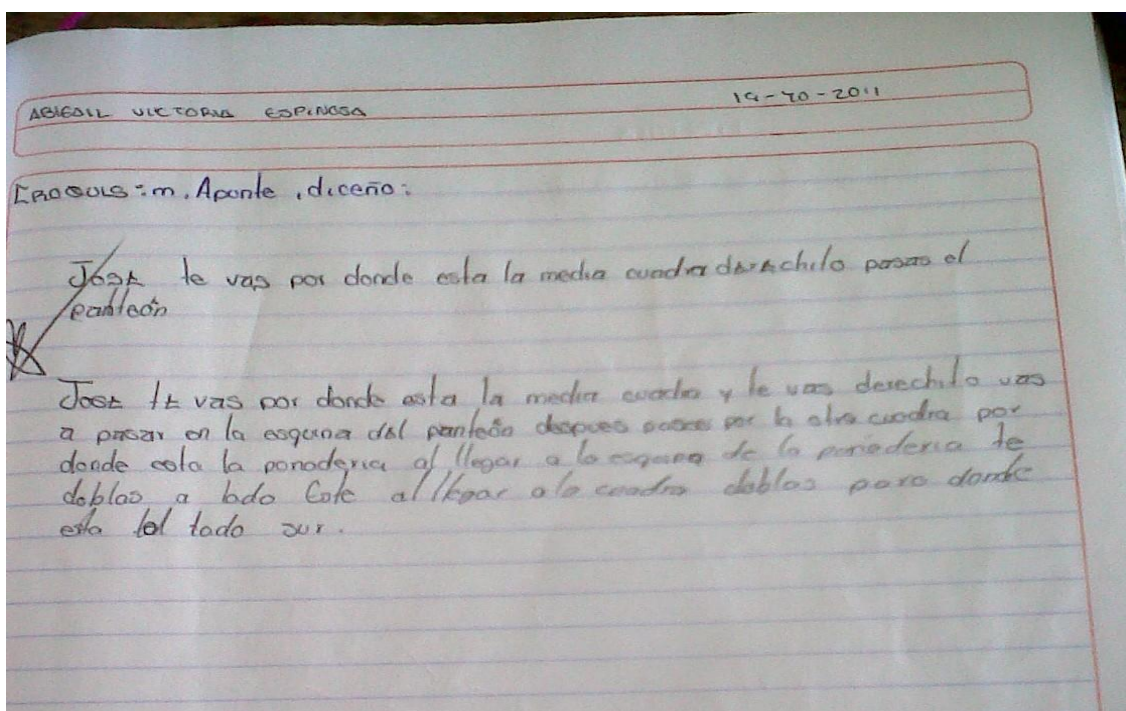 ABIGAIL VICTORIA ESPINOSA 19-10-2011
CROQUIS: m. Aponte, diceño:
José te vas por donde esta la media cuadra derechito pasas el
panteón
José te vas por donde esta la media cuadra y te vas derechito vas
a pasar en la esquina del panteón despues pases por la otra cuadra por
donde esta la panaderia al llegar a la esquina de la panaderia te
doblas a lado Este al llegar a la cuadra doblas para donde
esta lado sur.